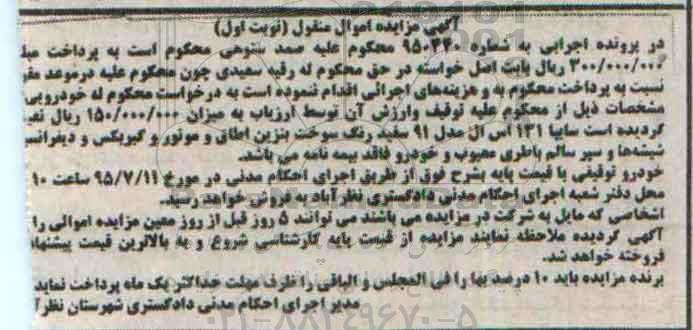 آگهی مزایده اموال منقول (نوبت اول)
در پرونده اجرایی به شماره ۹۵۰۳۴۰ محکوم علیه صمد ستوهی محکوم است به پرداخت
۳۰۰/۰۰۰/۰۰۰ ریال بابت اصل خواسته در حق محکوم له رقیه سعیدی چون محکوم علیه درموعد
نسبت به پرداخت محکوم به و هزینه‌های اجرائی اقدام ننموده است به درخواست محکوم له خودرویی
مشخصات ذیل از محکوم علیه توقیف وارزش آن توسط ارزیاب به میزان ۱۵۰/۰۰۰/۰۰۰ ریال
گردیده است سایپا ۱۳۱ اس ال مدل ۹۱ سفید رنگ سوخت بنزین اطاق و موتور و گیربکس و
شیشه‌ها و سپر سالم باطری معیوب و خودرو فاقد بیمه نامه می باشد.
خودرو توقیفی با قیمت پایه بشرح فوق از طریق اجرای احکام مدنی در مورخ ۹۵/۷/۱۱ ساعت ۱۰
محل دفتر شعبه اجرای احکام مدنی دادگستری نظرآباد به فروش خواهد رسید.
اشخاصی که مایل به شرکت در مزایده می باشند می توانند ۵ روز قبل از روز معین مزایده اموالی را
آگهی گردیده ملاحظه نمایند مزایده از قیمت پایه کارشناسی شروع و به بالاترین قیمت
فروخته خواهد شد.
برنده مزایده باید ۱۰ درصد بها را فی المجلس و الباقی را ظرف مهلت حداکثر یک ماه پرداخت نماید
مدیر اجرای احکام مدنی دادگستری شهرستان
۰۲۱-۸۸۳۴۹۶۷۰-۵